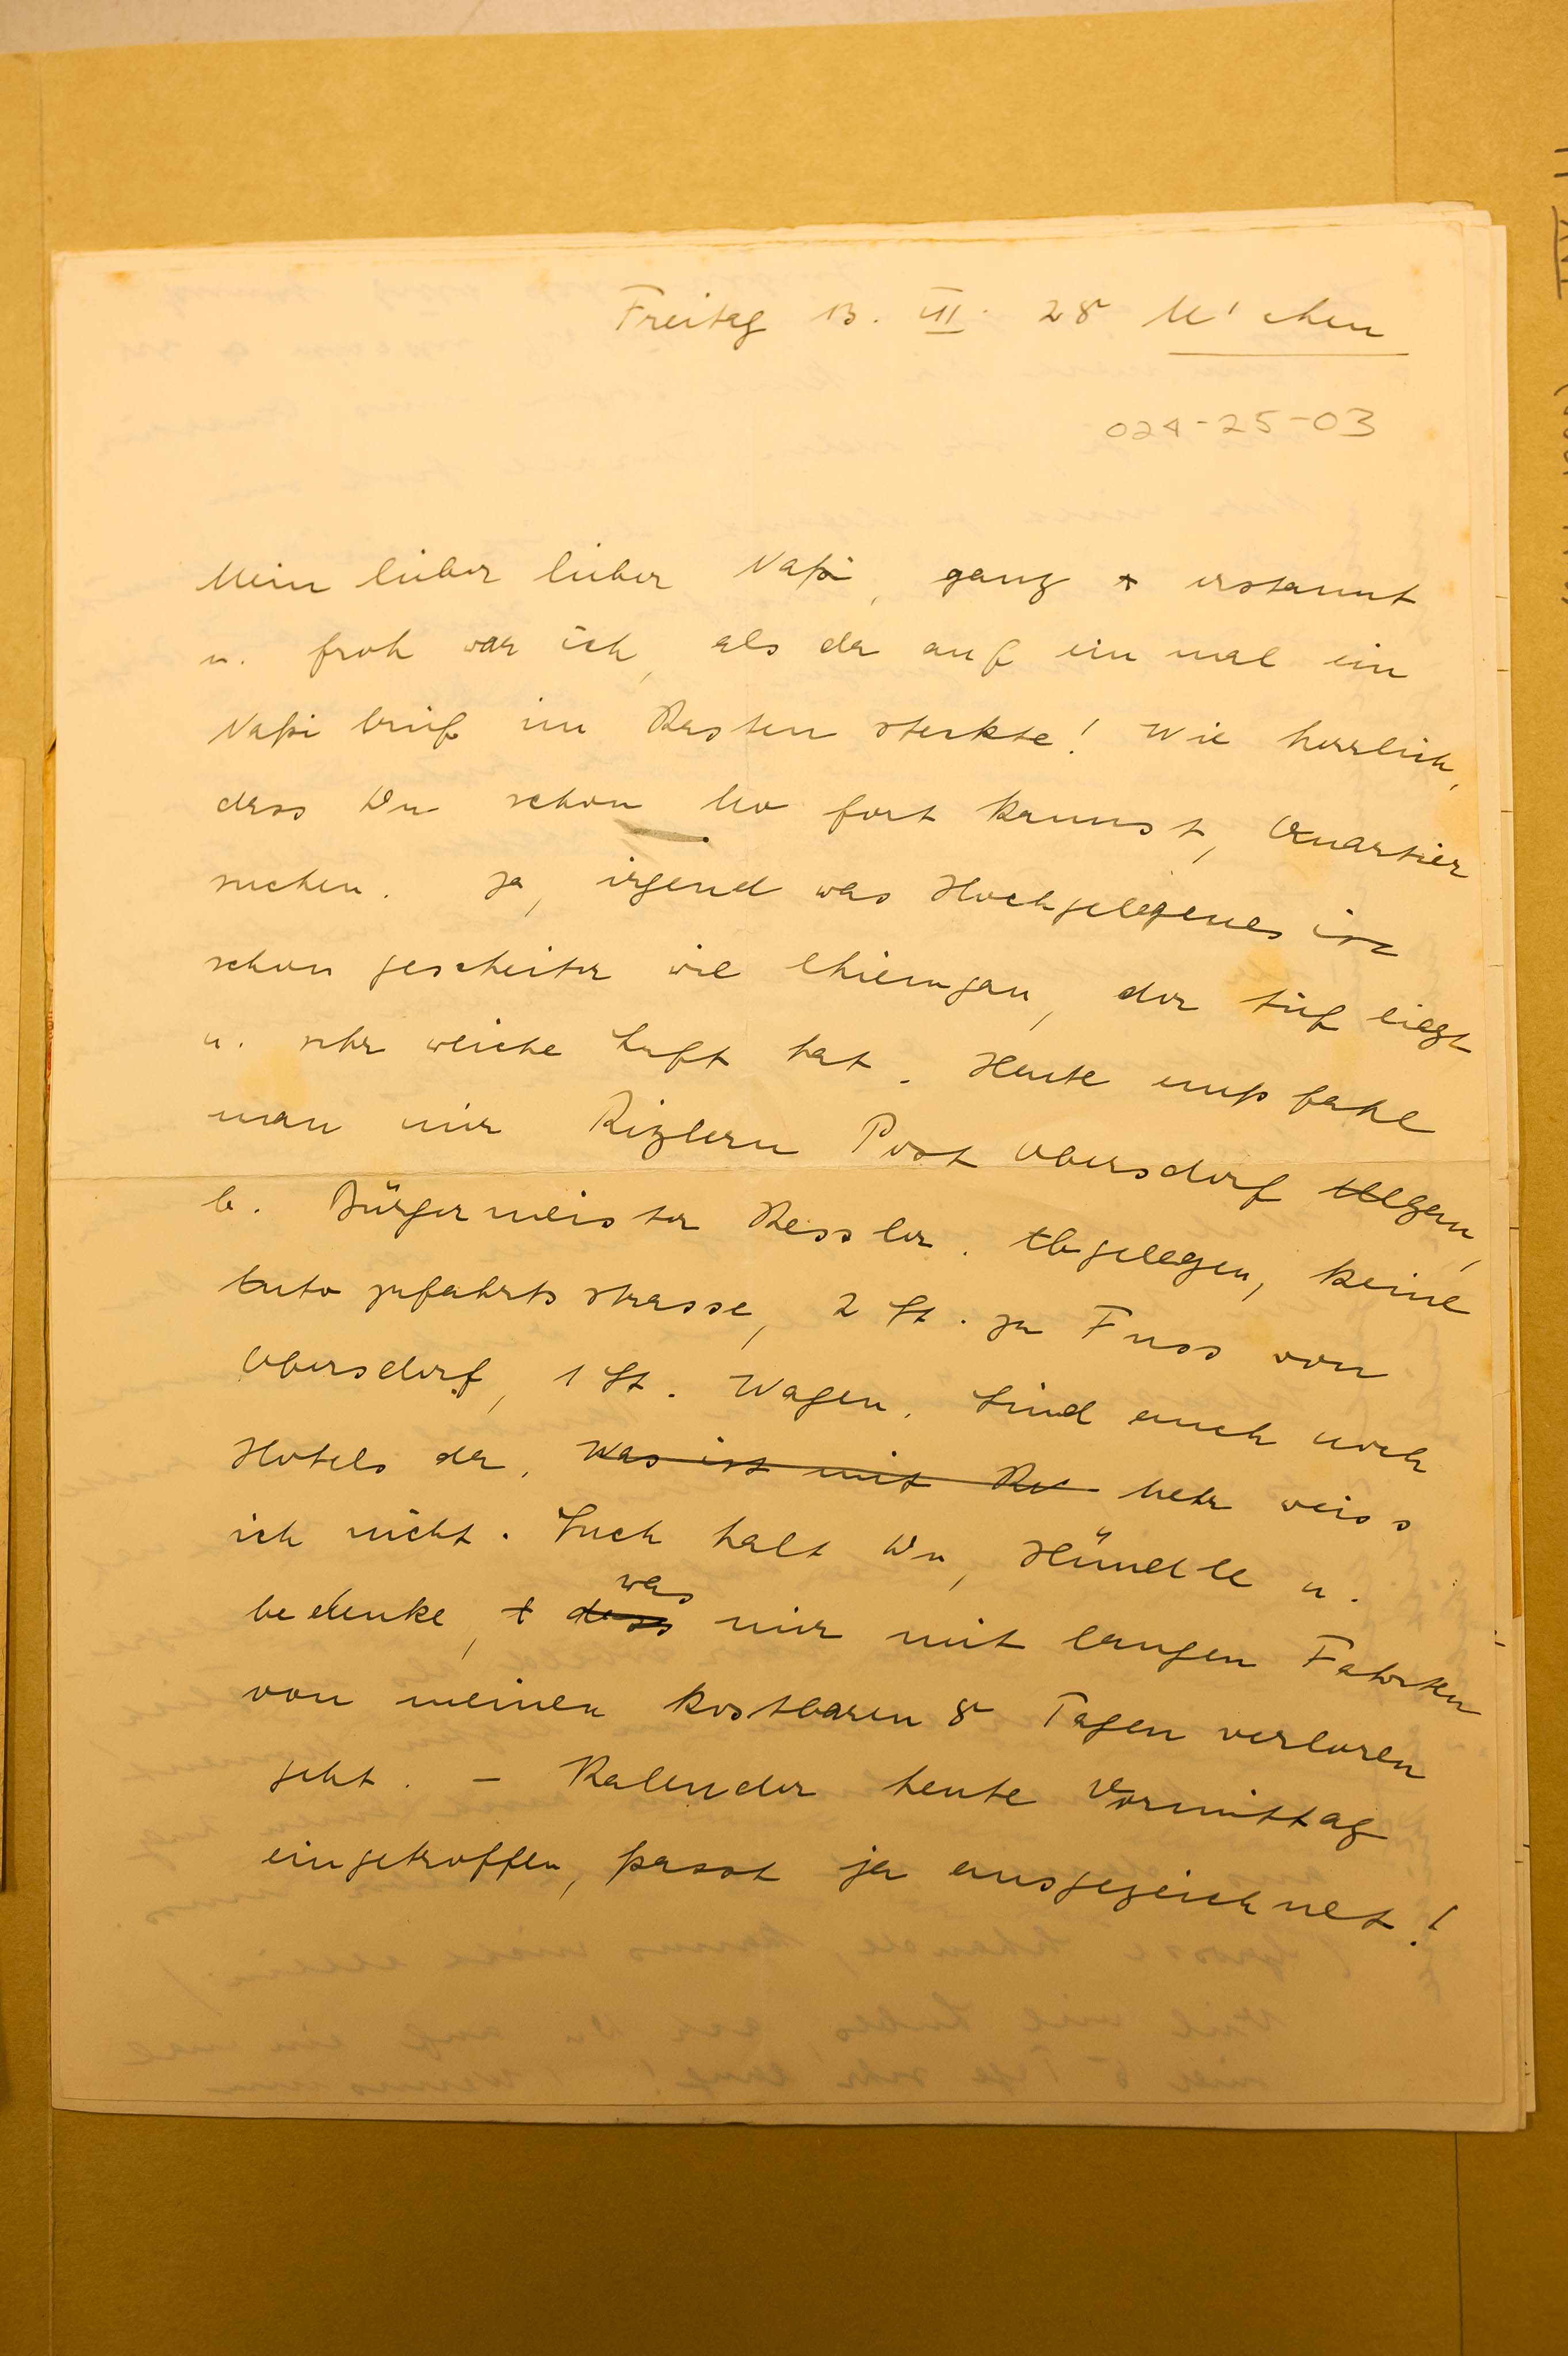 Freitag 13. VII. 28 M'chen
024-25-03
Mein lieber lieber Napi, ganz erstaunt
u. froh war ich, als da auf ein mal ein
Napi brief im Kasten steckte! Wie herrlich,
dass Du schon Mo fort kannst, Quartier
suchen. Ja, irgend was Hochgelegenes ist
schon gescheiter wie Chiemgau, der tief liegt
u. sehr weiche Luft hat. Heute empfahl
man mir Rizlern Post Obersdorf Allgäu,
b. Bürgermeister Kessler. Abgelegen, keine
Auto zufahrts strasse, 2 St. zu Fuss von
Obersdorf, 1 St. Wagen. Sind auch noch
Hotels da. Was ist mit Mehr weiss
ich nicht. Such halt Du, Hündle u.
was
bedenke, dass mir mit langen Fahrten
von meinen kostbaren 8 Tagen verloren
geht. – Kalender heute Vormittag
eingetroffen, passt ja ausgezeichnet!